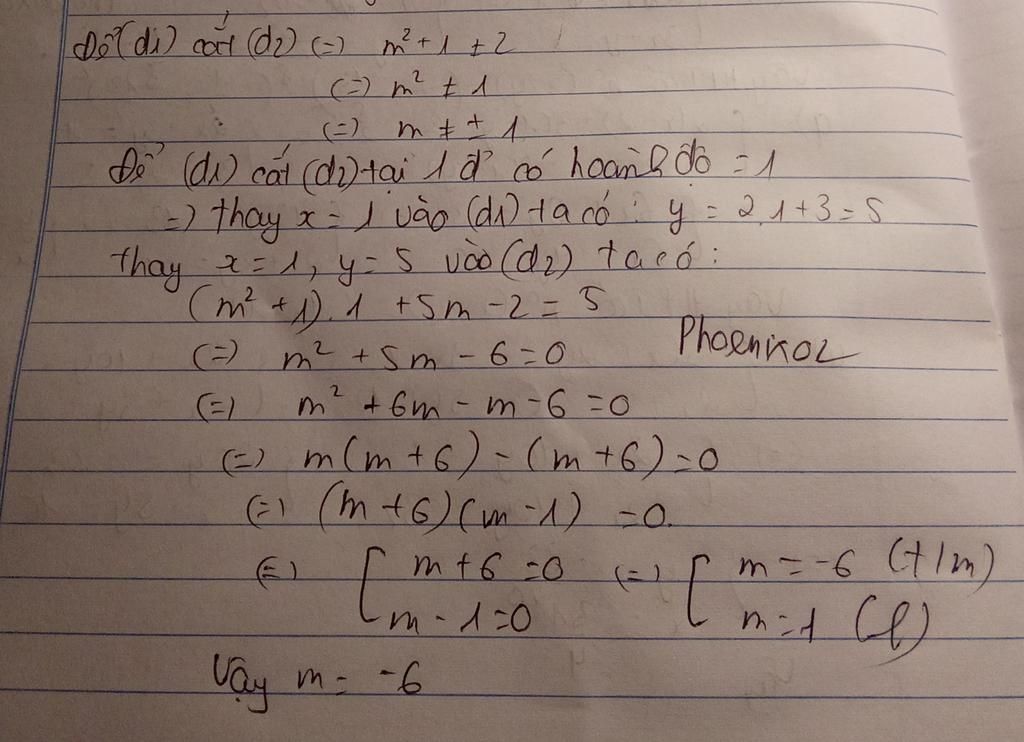 Để (d1) cắt (d2) (=) m² + 1 ≠ 2
(=) m² ≠ 1
(=) m ≠ ± 1
Để (d1) cắt (d2) tại 1 đ' có hoành độ = 1
=) thay x = 1 vào (d1) ta có : y = 2.1 + 3 = 5
thay x = 1, y = 5 vào (d2) ta có :
(m² + 1).1 + 5m - 2 = 5
(=) m² + 5m - 6 = 0
Phoenix02
(=) m² + 6m - m - 6 = 0
(=) m(m + 6) - (m + 6) = 0
(=) (m + 6)(m - 1) = 0.
(=) [ m + 6 = 0 (=) [ m = -6 (t/m)
m - 1 = 0 m = 1 (l)
Vậy m = -6